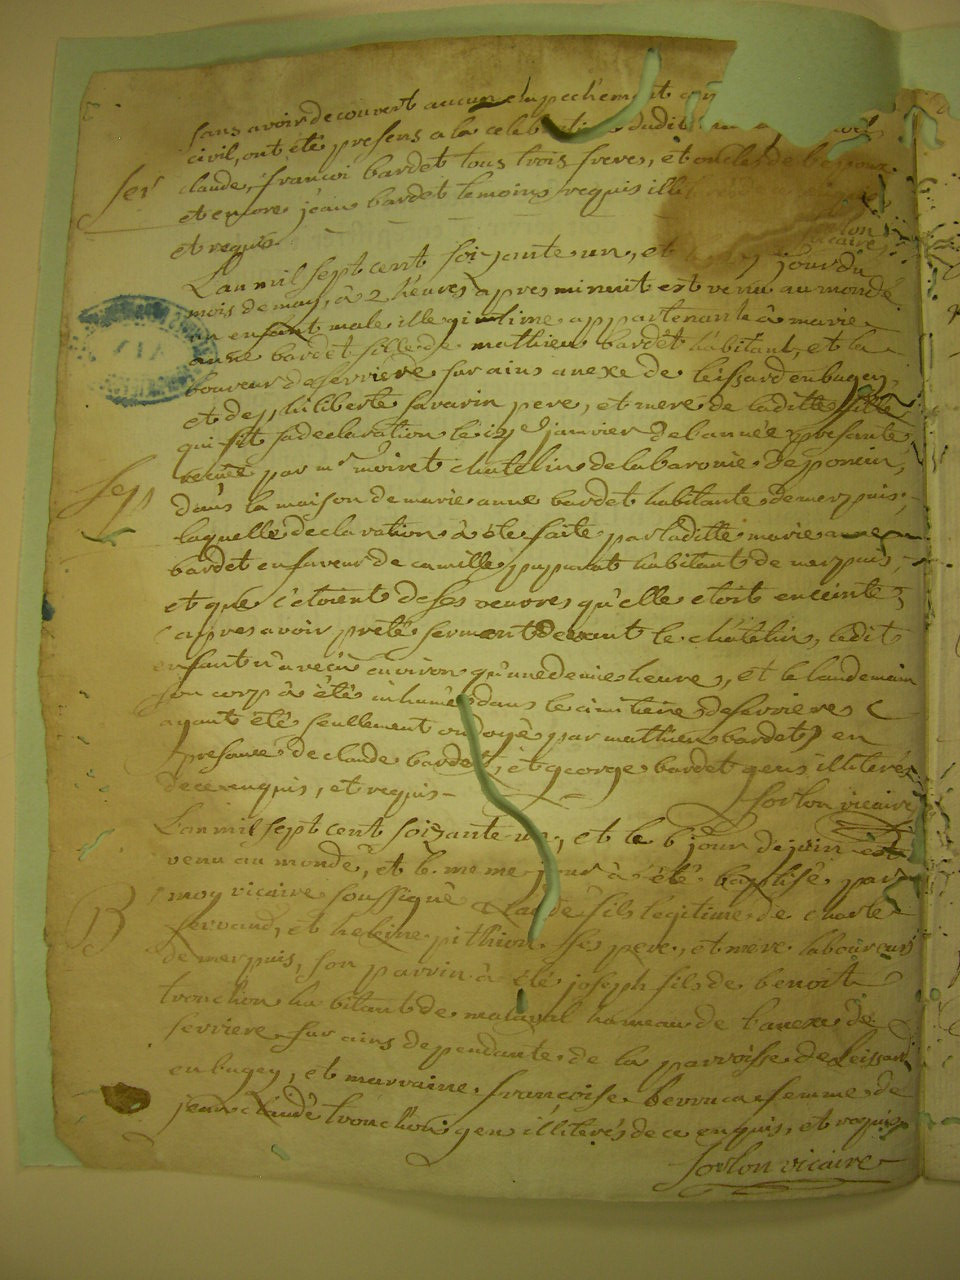 sans avoir decouvert aucun empechement
civil, ont été presens a la celebration dudit
claude, françoi bardet tous trois freres, et oncles de l'epoux
et encore jean bardet temoins requis illit
ser
et requis.
sorlon
vicaire
L'an mil sept cent soixante un, et le jour du
mois de may, à 2 heures apres minuit est venu au monde
un enfant male illegimtime appartenant à marie
anne bardet fille de mathieu bardet habitant, et la
boureur de serriere sur ains anexe de leissard en bugey,
et de philiberte savarin pere, et mere de laditte fille
qui fit sa declaration le janvier de l'année presante
recüe par mr moiret chatelin de la baronie de poncin,
sep
dans la maison de marie anne bardet habitante de merpuis,
laquelle declaration à éte faite par laditte marie anne
bardet en faveur de camille habitant de merpuis,
et que c'etoient de ses oeuvres qu'elle etoit enceinte
apres avoir preté serment devant le châtelin, ledit
enfant n'a vecû environ qu'une demie heure, et le landemain
son corp à été inhumé dans le cimitiere de serriere (
ayant été seullement ondoyé par mathieu bardet) en
presance de claude bardet, et george bardet gens illiterés
de ce enquis, et requis -
sorlon vicaire
L'an mil sept cent soixante un, et le 6 jour de juin est
venu au monde, et le meme jour à été baptisé par
moy vicaire soussigné claude fils legitime de charle
B
servand, et heleine pithion ses pere, et mere laboureurs
de merpuis, son parrin à été joseph fils de benoit
tronchon habitant de malaval hameau de l'anexe de
serriere sur ains dependante de la parroisse de leissard
en bugey, et marraine françoise berruca femme de
jean claude tronchon gen illiterés de ce enquis, et requis
sorlon vicaire